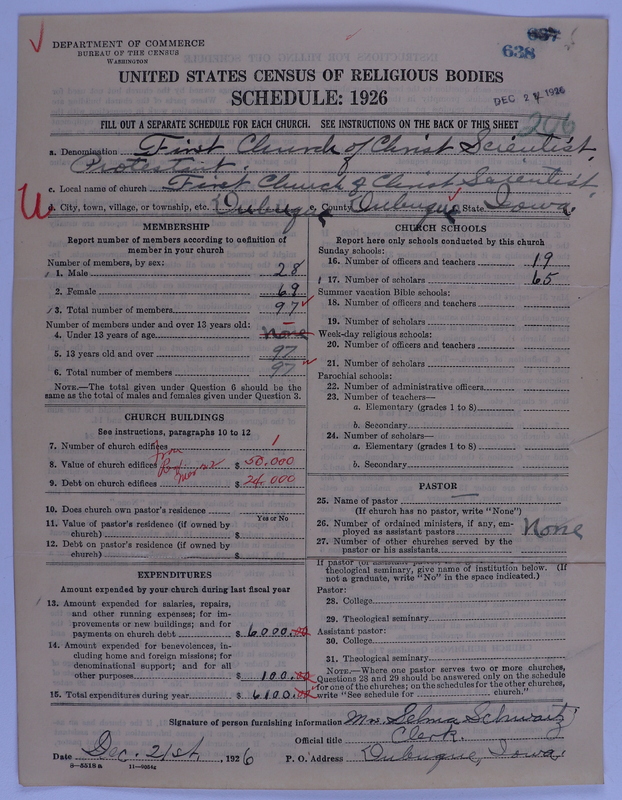 637
638
DEPARTMENT OF COMMERCE
BUREAU OF THE CENSUS
WASHINGTON
UNITED STATES CENSUS OF RELIGIOUS BODIES
SCHEDULE: 1926
DEC 24 1926
FILL OUT A SEPARATE SCHEDULE FOR EACH CHURCH. SEE INSTRUCTIONS ON THE BACK OF THIS SHEET
206
a. Denomination First Church of Christ Scientist,
Protestant.
c. Local name of church First Church of Christ Scientist,
d. City, town, village, or township, etc. Dubuque e. County Dubuque State Iowa.
MEMBERSHIP
Report number of members according to definition of
member in your church
Number of members, by sex:
1. Male 28
2. Female 69
3. Total number of members 97
Number of members under and over 13 years old:
4. Under 13 years of age None
5. 13 years old and over 97
6. Total number of members 97
NOTE.—The total given under Question 6 should be the
same as the total of males and females given under Question 3.
CHURCH BUILDINGS
See instructions, paragraphs 10 to 12
7. Number of church edifices 1
From
8. Value of church edifices $ 50,000
9. Debt on church edifices $ 24,000
10. Does church own pastor's residence
Yes or No
11. Value of pastor's residence (if owned by
church) $
12. Debt on pastor's residence (if owned by
church) $
EXPENDITURES
Amount expended by your church during last fiscal year
13. Amount expended for salaries, repairs,
and other running expenses; for im-
provements or new buildings; and for
payments on church debt $ 6000.00
14. Amount expended for benevolences, in-
cluding home and foreign missions; for
denominational support; and for all
other purposes $ 100.00
15. Total expenditures during year $ 6100.00
CHURCH SCHOOLS
Report here only schools conducted by this church
Sunday schools:
16. Number of officers and teachers 19
17. Number of scholars 65
Summer vacation Bible schools:
18. Number of officers and teachers
19. Number of scholars
Week-day religious schools:
20. Number of officers and teachers
21. Number of scholars
Parochial schools:
22. Number of administrative officers
23. Number of teachers—
a. Elementary (grades 1 to 8)
b. Secondary
24. Number of scholars—
a. Elementary (grades 1 to 8)
b. Secondary
PASTOR
25. Name of pastor
(If church has no pastor, write "None")
26. Number of ordained ministers, if any, em-
ployed as assistant pastors None
27. Number of other churches served by the
pastor or his assistants
If pastor (or assistant pastor)
theological seminary, give name of institution below. (If
not a graduate, write "No" in the space indicated.)
Pastor:
28. College
29. Theological seminary
Assistant pastor:
30. College
31. Theological seminary
NOTE.—Where one pastor serves two or more churches,
Questions 28 and 29 should be answered only on the schedule
for one of the churches; on the schedules for the other churches,
write "See schedule for church."
Signature of person furnishing information Mrs Selma Schwartz
Official title Clerk.
Date Dec. 21st, 1926 P. O. Address Dubuque, Iowa.
8—5518a 11—9064